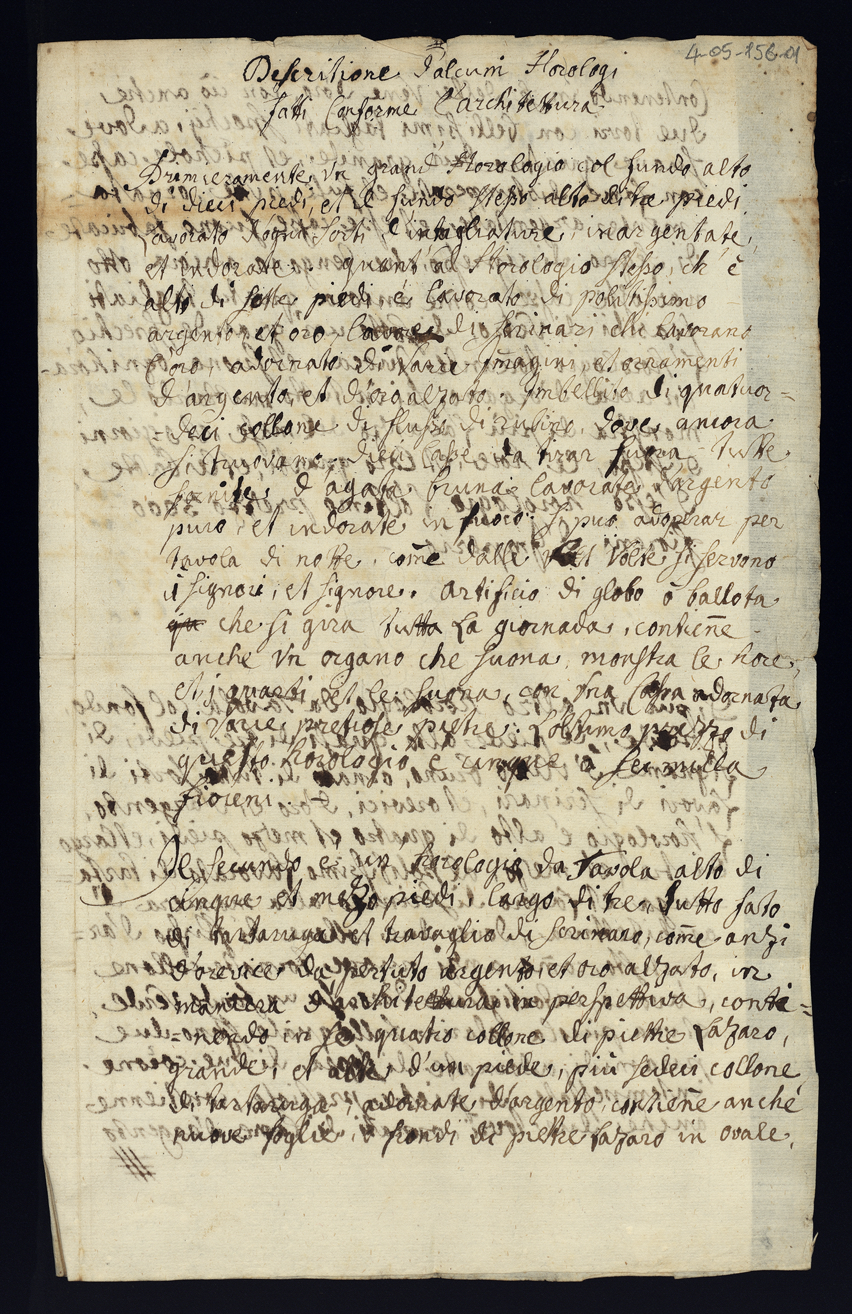 4-05-156-01
Descritione d'alcuni Horologi
fatti Conforme l'architettura.
Primieramente, un grand' Horologio col fundo alto
di dieci piedi, et il fundo stesso alto di tre piedi
Lavorato d'ogni sorti d'intagliature, inargentate,
et indorate, quant' al Horologio stesso, ch' è
alto di sette piedi, è lavorato di politissimo
argento, et oro di scrinari che lavorano
adornato di varie imagini, et ornamenti
d'argento, et d'oro alzato. imbellito di quatuor=
=deci collone di flusso di rubino, dove, ancora
si truovano dieci casse da tirar fuora tutte
fornite d'agata bruna lavorate d'argento
puro, et indorate in fuoco. si puo adoperar per
tavola di notte, come dalle volte si servono
i signori, et signore. artificio di globo ò ballota
che si gira tutta La giornada, contiene
anche un organo che suona, monstra le hore,
et i quarti et le suona, con una adornata
di varie pretiose pietre. L'ultimo prezzo di
questo horologio è cinque ò sei milla
fioreni.
Il secundo e, un horologio da Tavola alto di
cinque et mezzo piedi, largo di tre, tutto fato
di tartaruga et travaglio di scrinaro, come anzi
d'orevice da pertuto argento, et oro alzato, in
maniera d'architettura in perspettiva, conte=
=nendo in se quatro collone di pietre Lazaro,
grande, et alte d'un piede, più sedeci collone
di tartaruga, adornate d'argento, contiene anche
nuove foglie, ò fondi di pietre Lazaro in ovale,